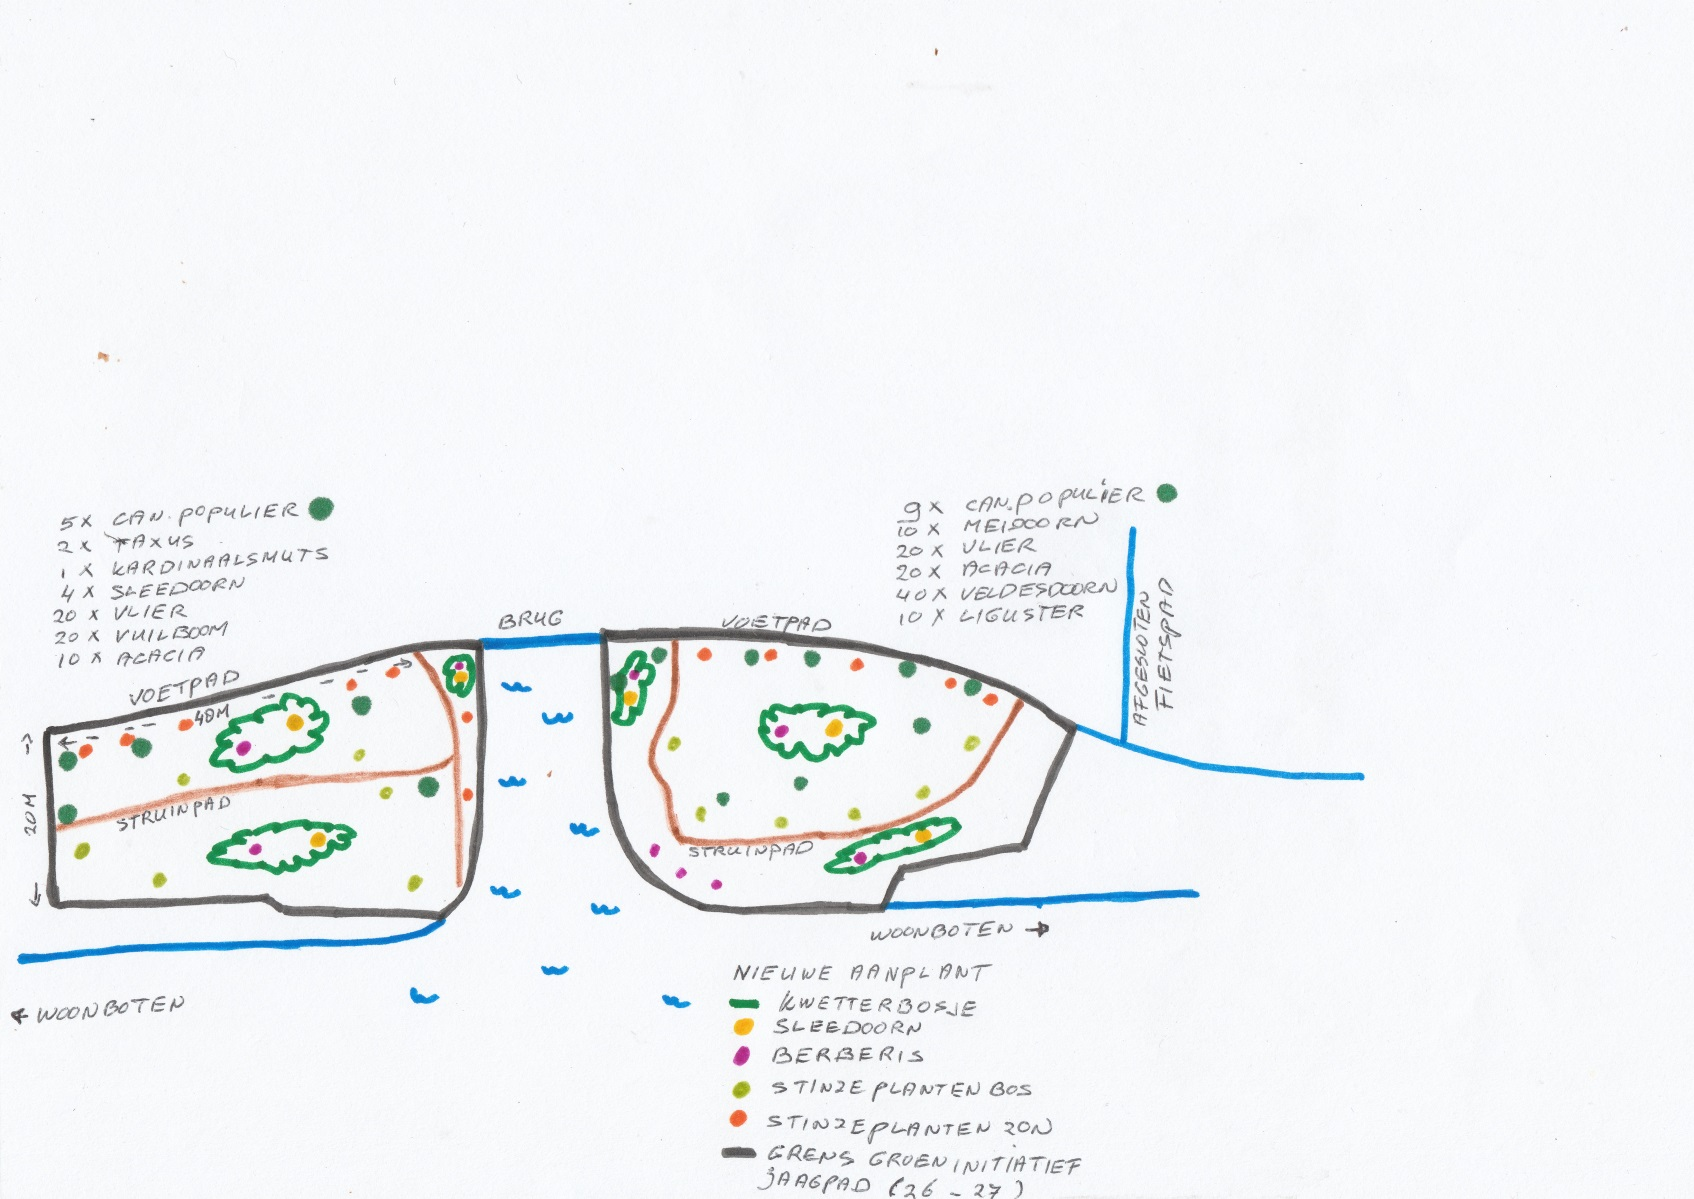 5X CAN. POPULIER
2X TAXUS
1 X KARDINAALSMUTS
4 X SLEEDOORN
20 X VLIER
20 X VUILBOOM
10 X ACACIA
9 X CAN. POPULIER
10 X MEIDOORN
20 X VLIER
20 X ACACIA
40 X VELDESDOORN
10 X LIGUSTER
VOETPAD
40M
20 M
STRUINPAD
BRUG
VOETPAD
STRUINPAD
AFGESLOTEN
FIETSPAD
WOONBOTEN
WOONBOTEN
NIEUWE AANPLANT
KWETTERBOSJE
SLEEDOORN
BERBERIS
STINZEPLANTEN BOS
STINZEPLANTEN ZON
GRENS GROENINITIATIEF
JAAGPAD (26 - 27)